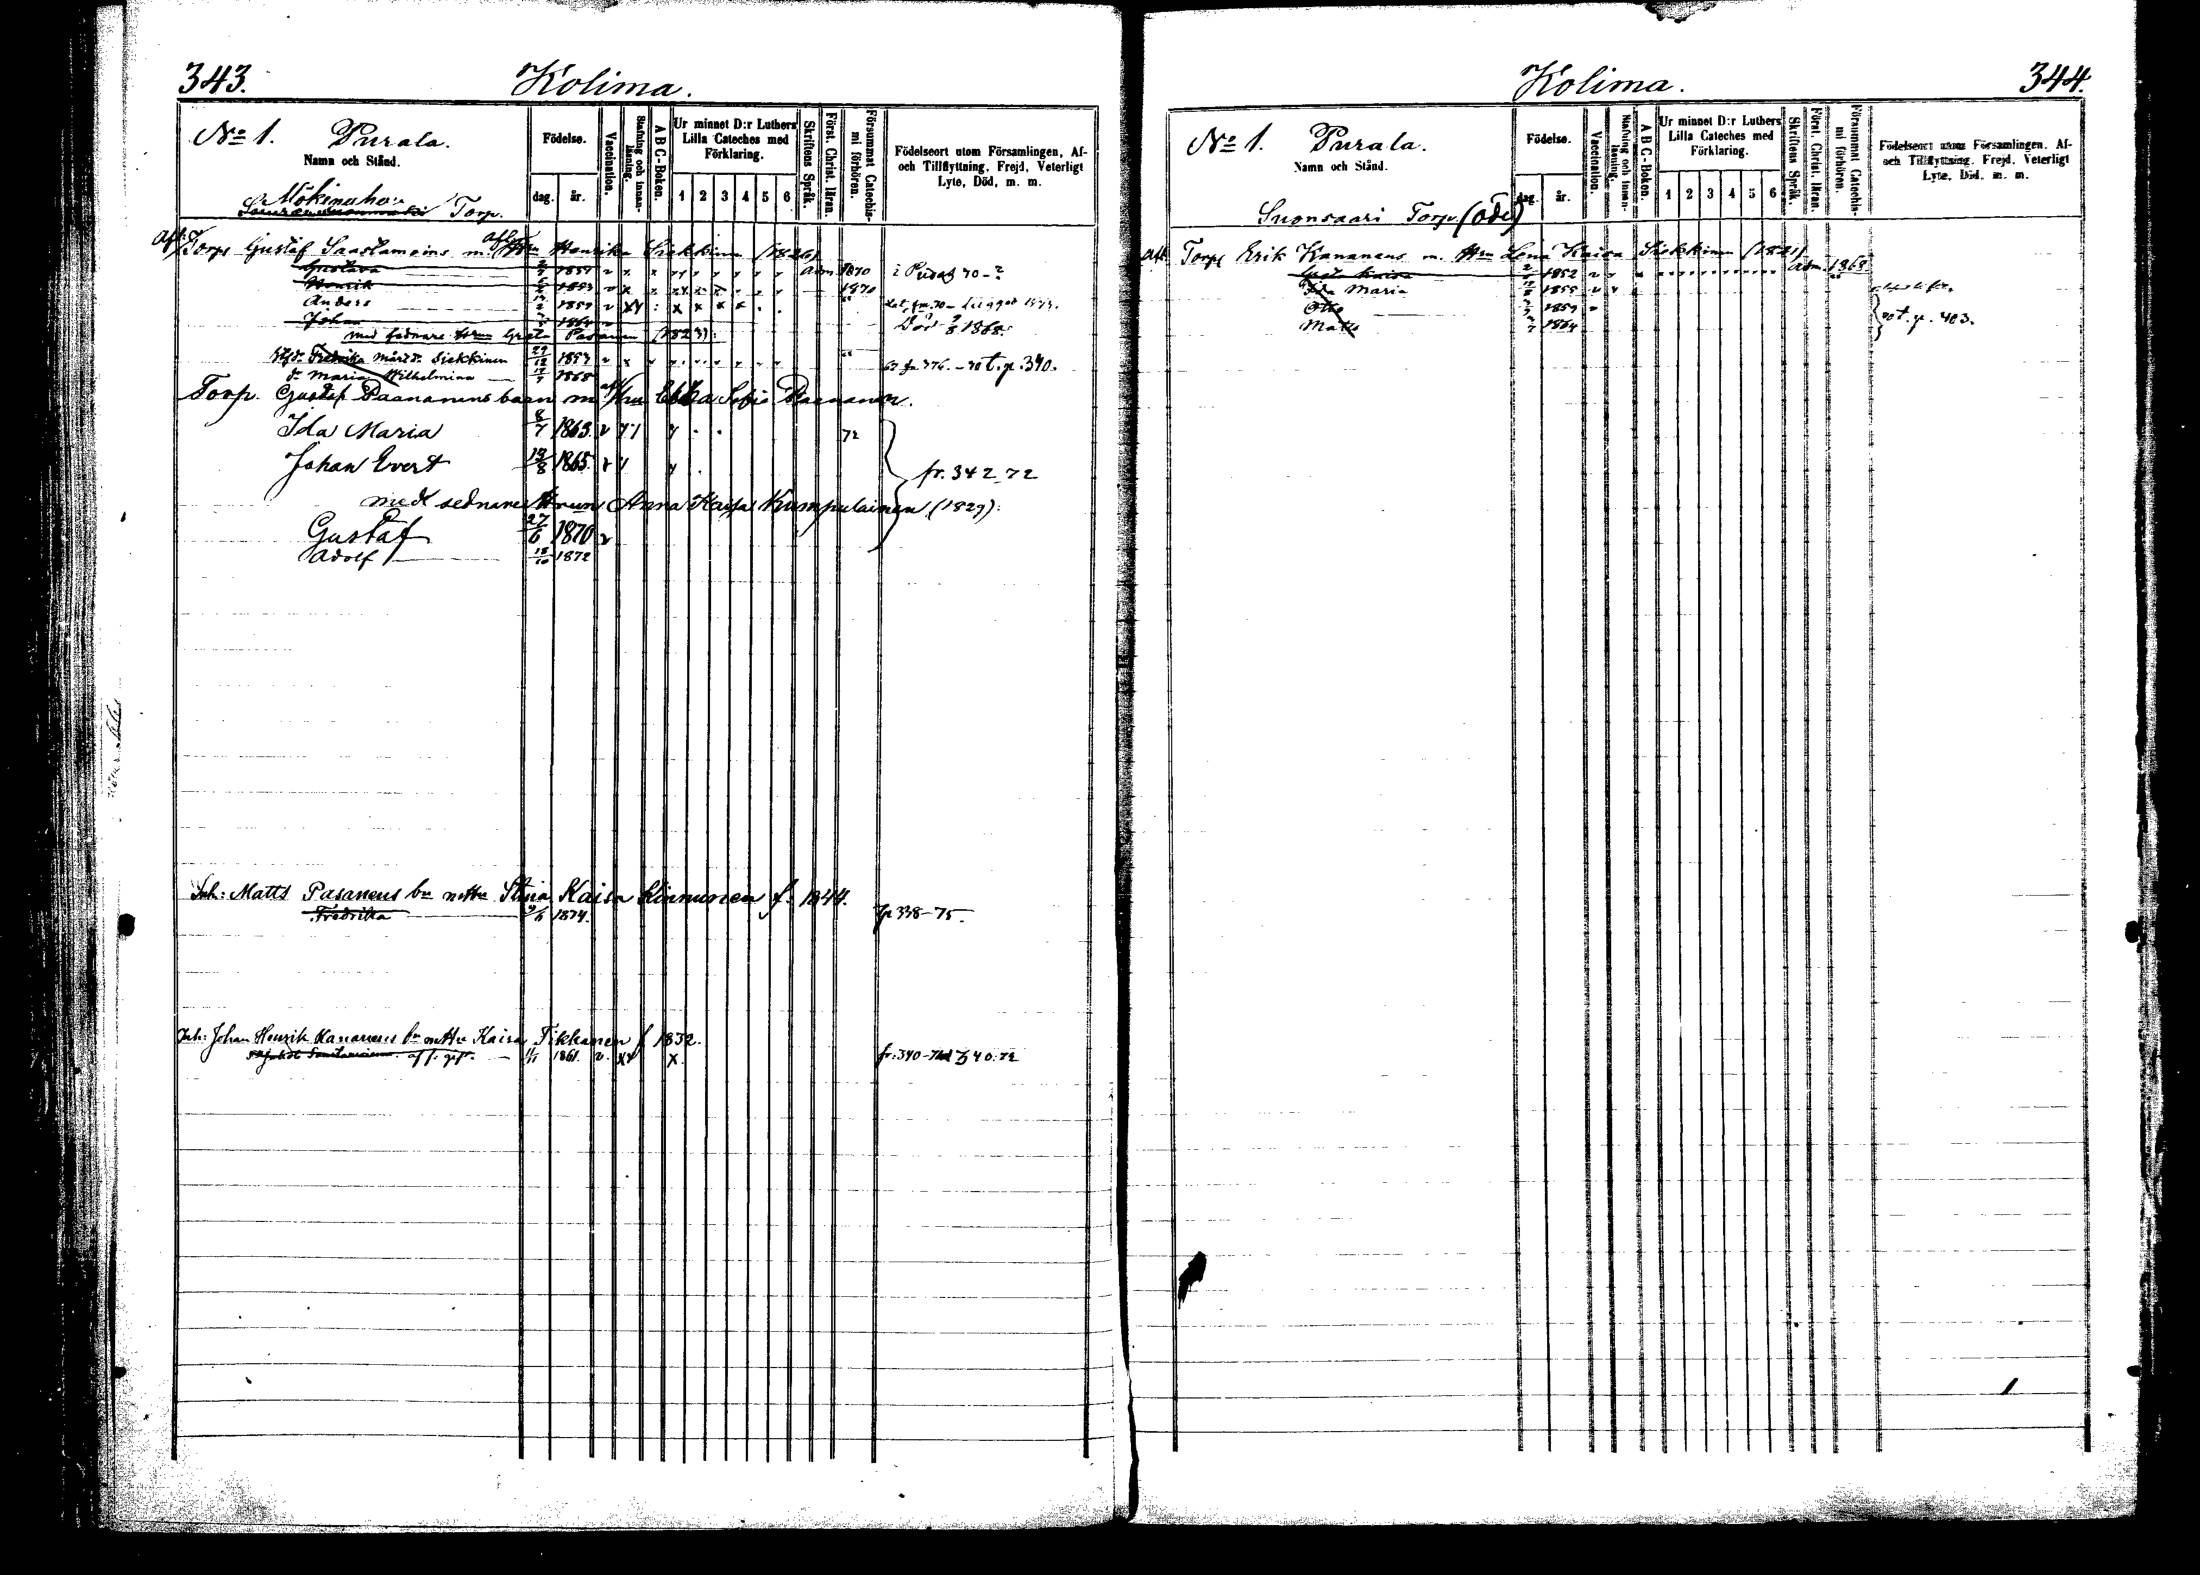 343. Kolima.
No 1. Purala.
Namn och Stånd.
Födelse.
dag. år.
Vaccination.
Stafning och innanläsning.
ABC-Boken.
Ur minnet D:r Luthers Lilla Cateches med Förklaring.
1 2 3 4 5 6
Skriftens Språk.
Först. Christ. läran.
Försummat Catechismi förhören.
Födelseort utom Församlingen, Af- och Tillflyttning, Frejd, Veterligt Lyte, Död, m. m.
Torp.
Torp Gustaf Saastamoins m. Henrika Siekkinen (1826)
Gustava 1851 v adm 1870
Henrik 1853 v 1870
Anders 1859 v
Johan 1864 v Död 1868.
med sednare Hrun Greta Pasanen (1823):
Fredrika Mårts dr Siekkinen 29/12 1853 v
dr Maria Wilhelmina 1868 t. p. 340.
Torp. Gustaf Paananens barn m Hru Ebba Sofia Paananen.
Ida Maria 8/7 1863. v 72
Johan Evert 19/8 1865. v fr. 342 72
med sednare Hrun Anna Kaisa Kumpulainen (1829):
Gustaf 27/6 1870 v
Adolf 18/10 1872
Inh: Matts Pasanens bn m Hu Stina Kaisa Kinnunen f. 1844.
Fredrika 1874. fr 338-75.
Inh: Johan Henrik Kananens bn m Hu Kaisa Tikkanen f 1832.
1861. v. x
344. Kolima.
No 1. Purala.
Namn och Stånd.
Födelse.
dag. år.
Vaccination.
Stafning och innanläsning.
ABC-Boken.
Ur minnet D:r Luthers Lilla Cateches med Förklaring.
1 2 3 4 5 6
Skriftens Språk.
Först. Christ. läran.
Försummat Catechismi förhören.
Födelseort utom Församlingen, Af- och Tillflyttning, Frejd, Veterligt Lyte, Död, m. m.
Suonsaari Torp (öde)
Torp Erik Kananens m. Hru Lena Kaisa Siekkinen (1821)
Greta Kaisa 1852 v adm. 1868
Ida Maria 1855 v
Otto 1859 v
Matts 1864 t. p. 403.